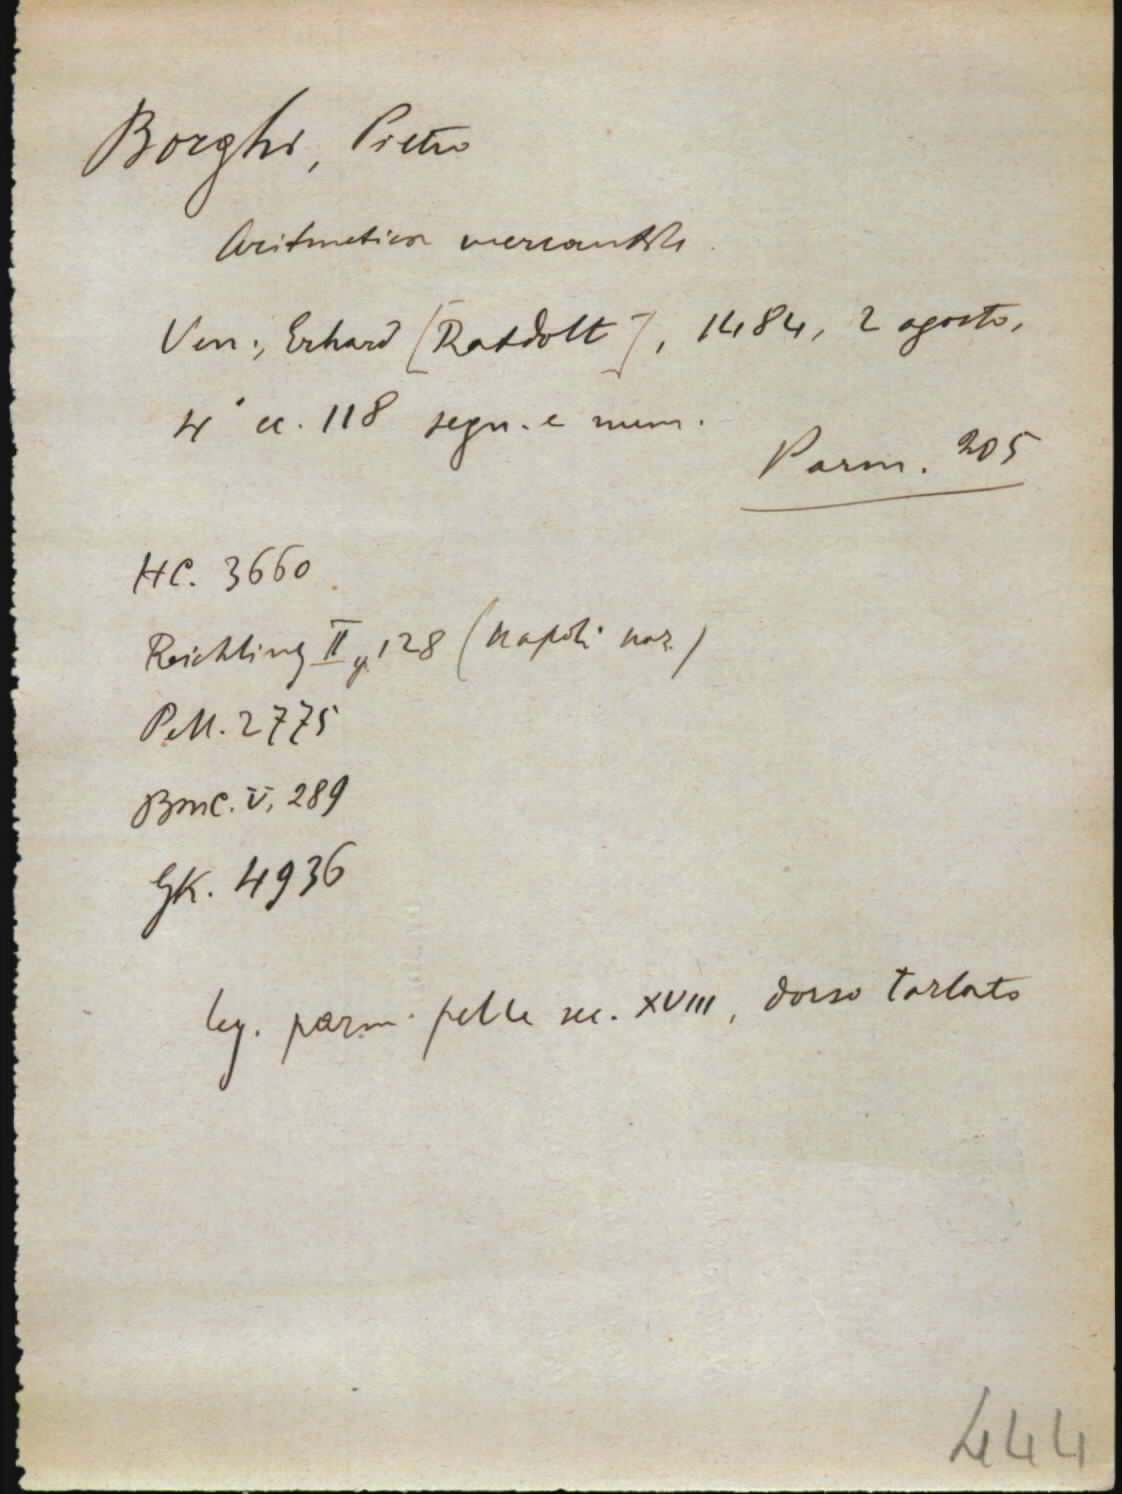 Borghi, Pietro
Aritmetica mercantile.
Ven., Erhard [Ratdolt], 1484, 2 agosto,
4° cc. 118 segn. e num.
Parm. 205
HC. 3660
Reichling II, 128 (Napoli naz.)
Pell. 2775
BMC. V, 289
GK. 4936
leg. parm. pelle sec. XVIII, dorso tarlato
444